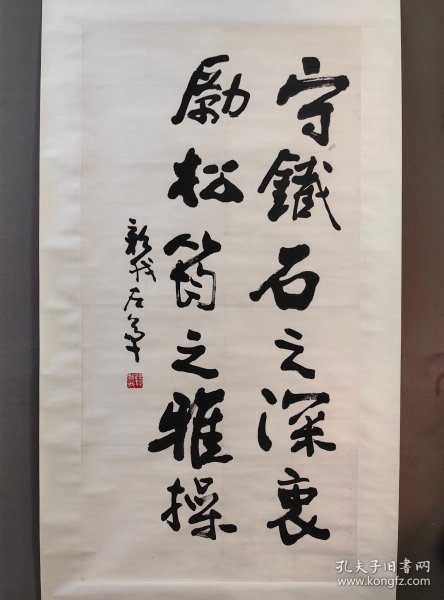 守鐵石之深衷
勵松筠之雅操
新我左筆
孔夫子旧书网
www.kongfz.com